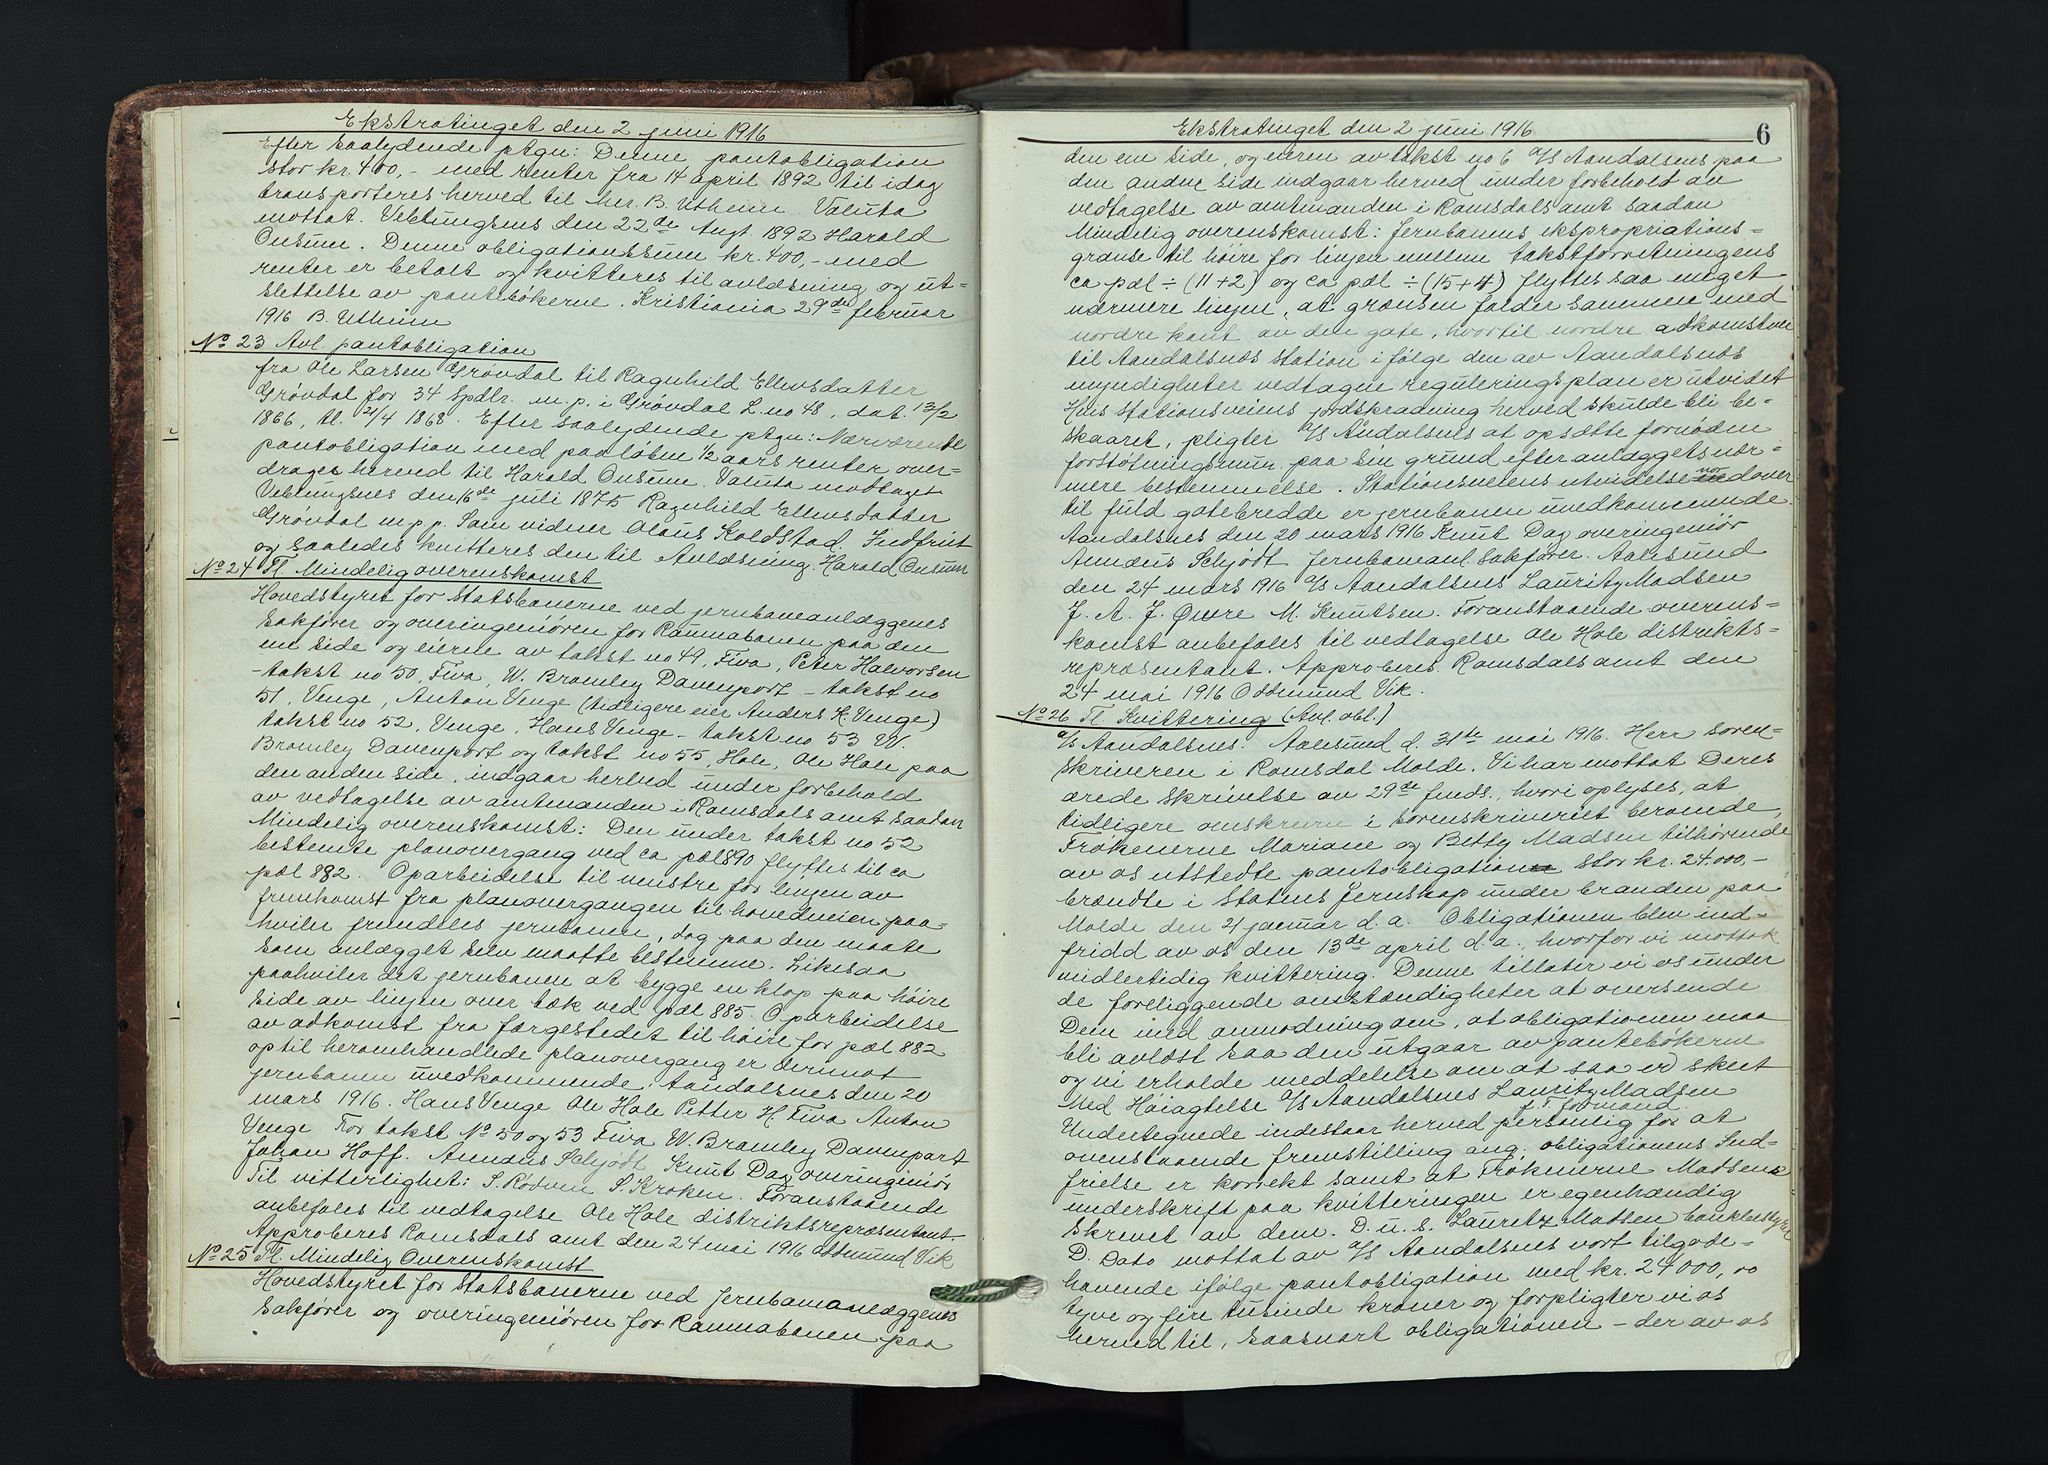 Ekstratinget den 2 juni 1916
Efter saalydende ptgn: Denne pantobligation
stor kr. 400,- med renter fra 14 april 1892 til idag
transporteres herved til her. B. Utheim. Valuta
mottat. Veblungsnes den 22de Augt 1892 Harald
Onsum. Denne obligationssum kr. 400,- med
renter er betalt og kvitteres til avlæsning og ut-
slettelse av pantebökerne. Kristiania 29de februar
1916 B. Utheim
No 23 Avl. pantobligation
fra Ole Larsen Grövdal til Ragnhild Ellevsdatter
Grövdal for 34 Spdlr. m. p. i Grövdal L. no 48, dat. 13/2
1866, tl. 21/4 1868. Efter saalydende ptgn: Nærværende
pantobligation med paaløbne 1/2 aars renter over-
drages herved til Harald Onsum. Valuta modtaget
Veblungsnes den 16de juli 1875 Ragnhild Ellevsdatter
Grövdal m. p. p. Som vidner Olaus Koldstad Indfriet
og saaledes kvitteres den til Avlæsning. Harald Onsum
No 24 Tl. Mindelig overenskomst
Hovedstyret for Statsbanerne ved jernbaneanlæggenes
sakförer og overingeniören for Raumabanen paa den
ene side og eierne av takst no 49, Fiva, Peter Halvorsen
- takst no 50, Fiva, W. Bromley Davenport - takst no
51, Venge, Anton Venge (tidligere eier Anders K. Venge)
takst no 52, Venge, Hans Venge - takst no 53 W.
Bromley Davenport og takst no 55, Hole, Ole Hole paa
den anden side, indgaar herved under forbehold
av vedtagelse av amtmanden i Romsdals amt saadan
Mindelig overenskomst: Den under takst no 52
bestemte planovergang ved ca pæl 890 flyttes til ca
pæl 882. Oparbeidelse til venstre for linjen av
fremkomst fra planovergangen til hovedveien paa-
hviler fremdeles jernbanen, dog paa den maate
som anlægget selv maatte bestemme. Likesaa
paahviler det jernbanen at bygge en klop paa höire
side av linjen over bæk ved pæl 885. Oparbeidelse
av adkomst fra færgestedet til höire for pæl 882
op til heromhandlede planovergang er derimot
jernbanen uvedkommende. Aandalsnes den 20
mars 1916. Hans Venge Ole Hole Petter H. Fiva Anton
Venge For takst No 50 og 53 Fiva W. Bromley Davenport
Johan Hoff. Amdus Schjödt Knut Dag overingeniör
Til vitterlighet: S. Rödven S. Kroken. Foranstaaende
anbefales til vedtagelse Ole Hole distriktsrepræsentant.
Approberes Romsdals amt den 24 mai 1916 Oddmund Vik
No 25 Tl. Mindelig Overenskomst
Hovedstyret for Statsbanerne ved Jernbaneanlæggenes
sakförer og overingeniören for Raumabanen paa
Ekstratinget den 2 juni 1916
6
den ene side, og eieren av takst no 6 A/S Aandalsnes paa
den anden side indgaar herved under forbehold av
vedtagelse av amtmanden i Romsdals amt saadan
Mindelig overenskomst: Jernbanens ekspropriations-
grænse til höire for linjen mellem takstforretningens
ca pæl ÷ (11+2) og ca pæl ÷ (15+4) flyttes saa meget
nærmere linjen, at grænsen falder sammen med
nordre kant av den gate, hvortil nordre adkomstvei
til Aandalsnes station i fölge den av Aandalsnes
myndigheter vedtagne reguleringsplan er utvidet
Hvis stationsveiens jordskraaning herved skulde bli be-
skaaret, pligter A/S Aandalsnes at opsætte fornöden
forstötningsmur paa sin grund efter anlæggets nær-
mere bestemmelse. Stationsveiens utvidelse ut over
til fuld gatebredde er jernbanen uvedkommende.
Aandalsnes den 20 mars 1916 Knut Dag overingeniör
Amdus Schjödt Jernbaneanl. Sakförer. Aalesund
den 24 mars 1916 A/S Aandalsnes Lauritz Madsen
J. A. J. Øwre M. Knutsen. Foranstaaende overens-
komst anbefales til vedtagelse Ole Hole distrikts-
repræsentant. Approberes. Romsdals amt den
24 mai 1916 Oddmund Vik.
No 26 Tl. Kvittering (Avl. obl.)
A/S Aandalsnes. Aalesund d. 31te mai 1916. Herr soren-
skriveren i Romsdal Molde. Vi har mottat Deres
ærede skrivelse av 29de ds., hvori oplyses, at
tidligere omskrevne i sorenskriveriet beroende,
Frökenerne Mariane og Betty Madsen tilhörende
av os utstedte pantobligation stor kr. 24.000,-
brændte i Statens Jernskap under branden paa
Molde den 21 januar d. a. Obligationen blev ind-
fridd av os den 13de april d. a., hvorfor vi mottok
midlertidig kvittering. Denne tillater vi os under
de foreliggende omstændigheter at oversende
Dem med anmodning om, at obligationen maa
bli avlæst saa den utgaar av pantebökerne
og vi erholde meddelelse om at saa er skeet
Med Höiagtelse A/S Aandalsnes Lauritz Madsen
f. T. formand
Undertegnede indestaar herved personlig for at
ovenstaaende fremstilling ang. obligationens Ind-
frielse er korrekt samt at Frökenerne Madsens
underskrift paa kvitteringen er egenhændig
skrevet av dem. D. u. s. Lauritz Madsen bankbestyrer
D. Dato mottat av A/S Aandalsnes vort tilgode-
havende ifölge pantobligation med kr. 24000,00
tyve og fire tusinde kroner og forpligter vi os
herved til, saasnart obligationen - der av os